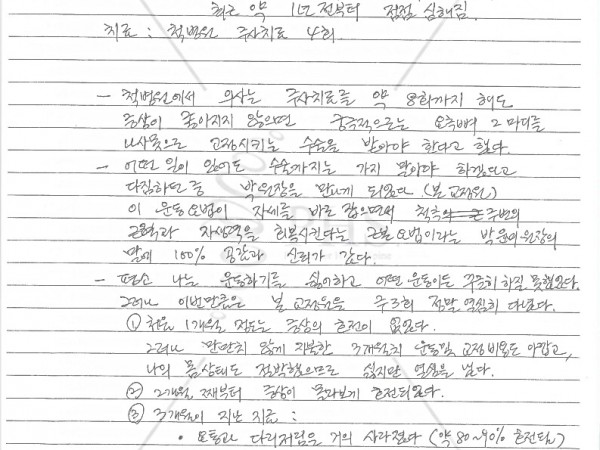 최근 약 1년 전부터 점점 심해짐.
치료 : 척병원 주사치료 4회.
- 척병원에서 의사는 주사치료를 약 8회까지 해도
증상이 좋아지지 않으면 궁극적으로는 요추뼈 2마디를
나사못으로 고정시키는 수술을 받아야 한다고 했다.
- 어떤 일이 있어도 수술까지는 가지 말아야 하겠다고
다짐하던 중 박원장을 만나게 되었다 (본 교정원)
이 운동요법이 자세를 바로 잡으면서 척추 주변의
근력과 자생력을 회복시킨다는 근본요법이라는 원장의
말에 100% 공감과 신뢰가 갔다.
- 평소 나는 운동하기를 싫어하고 어떤 운동이든 꾸준히 하질 못했었다.
그러나 이번만큼은 본 교정원을 주3회 정말 열심히 다녔다.
① 처음 1개월 정도는 증상의 호전이 없었다.
그러나 만만치 않게 지불한 3개월치 운동및 교정비용도 아깝고,
나의 몸상태도 절박했으므로 쉼지만 열심을 냈다.
② 2개월째부터 증상이 몰라보게 호전되었다.
③ 3개월이 지난 지금 :
• 요통과 다리저림은 거의 사라졌다 (약 80~90% 호전됨)